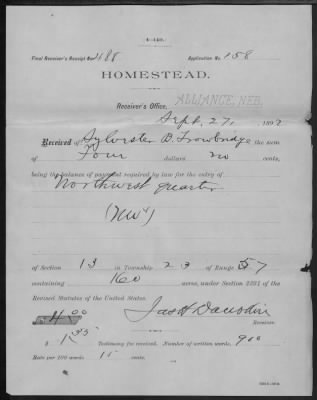 Final Receiver's Receipt No. 2488 Application No. 158
HOMESTEAD.
Receiver's Office, ALLIANCE, NEB.
Sept. 27, 1892
Received of Sylvester B. Trowbridge the sum
of Four dollars no cents,
being the balance of payment required by law for the entry of
Northwest quarter
(NW¼)
of Section 13 in Township 23 of Range 57
containing 160 acres, under Section 2291 of the
Revised Statutes of the United States.
$4.00 Jas H
Receiver.
$1.35 Testimony fee received. Number of written words, 900
Rate per 100 words 15 cents.